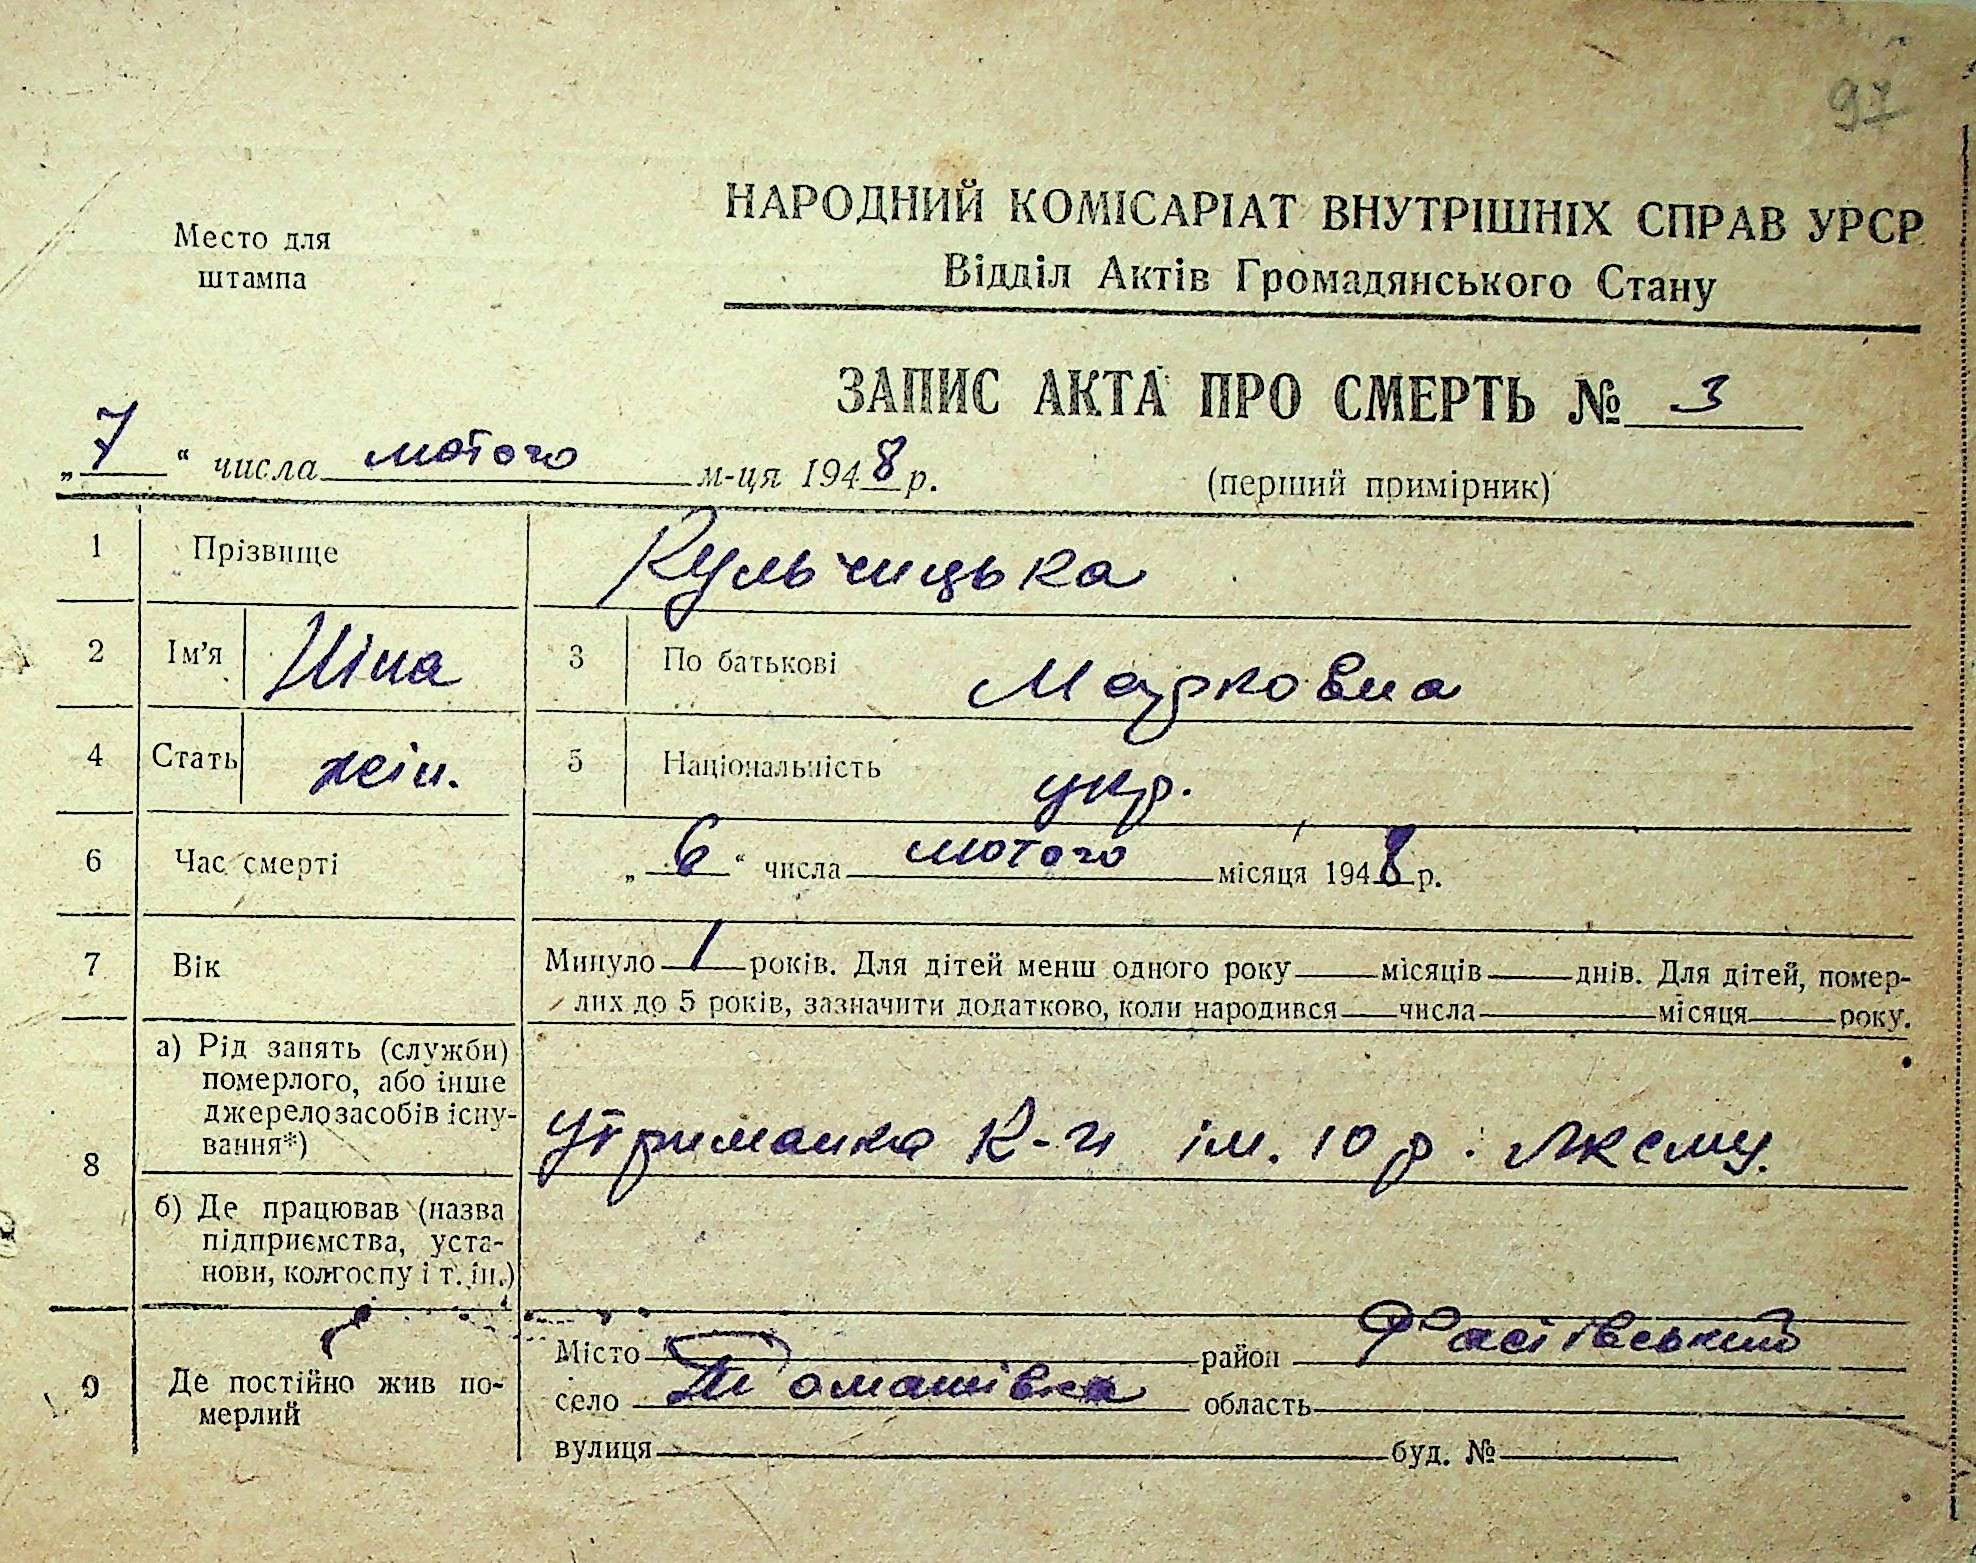 97
Место для
штампа
НАРОДНИЙ КОМІСАРІАТ ВНУТРІШНІХ СПРАВ УРСР
Відділ Актів Громадянського Стану
ЗАПИС АКТА ПРО СМЕРТЬ № 3
„7“ числа лютого м-ця 1948 р.
(перший примірник)
1 Прізвище Кульчицька
2 Ім'я Ніна 3 По батькові Марковна
4 Стать жін. 5 Національність укр.
6 Час смерті „6“ числа лютого місяця 1948 р.
7 Вік Минуло 1 років. Для дітей менш одного року місяців днів. Для дітей, помер-
лих до 5 років, зазначити додатково, коли народився числа місяця року.
8 а) Рід занять (служби)
померлого, або інше
джерело засобів існу-
вання*)
Утриманка к-п ім. 10 р. ЛКСМУ.
б) Де працював (назва
підприємства, уста-
нови, колгоспу і т. ін.)
9 Де постійно жив по-
мерлий
Місто район Фастівський
село Томашівка область
вулиця буд. №